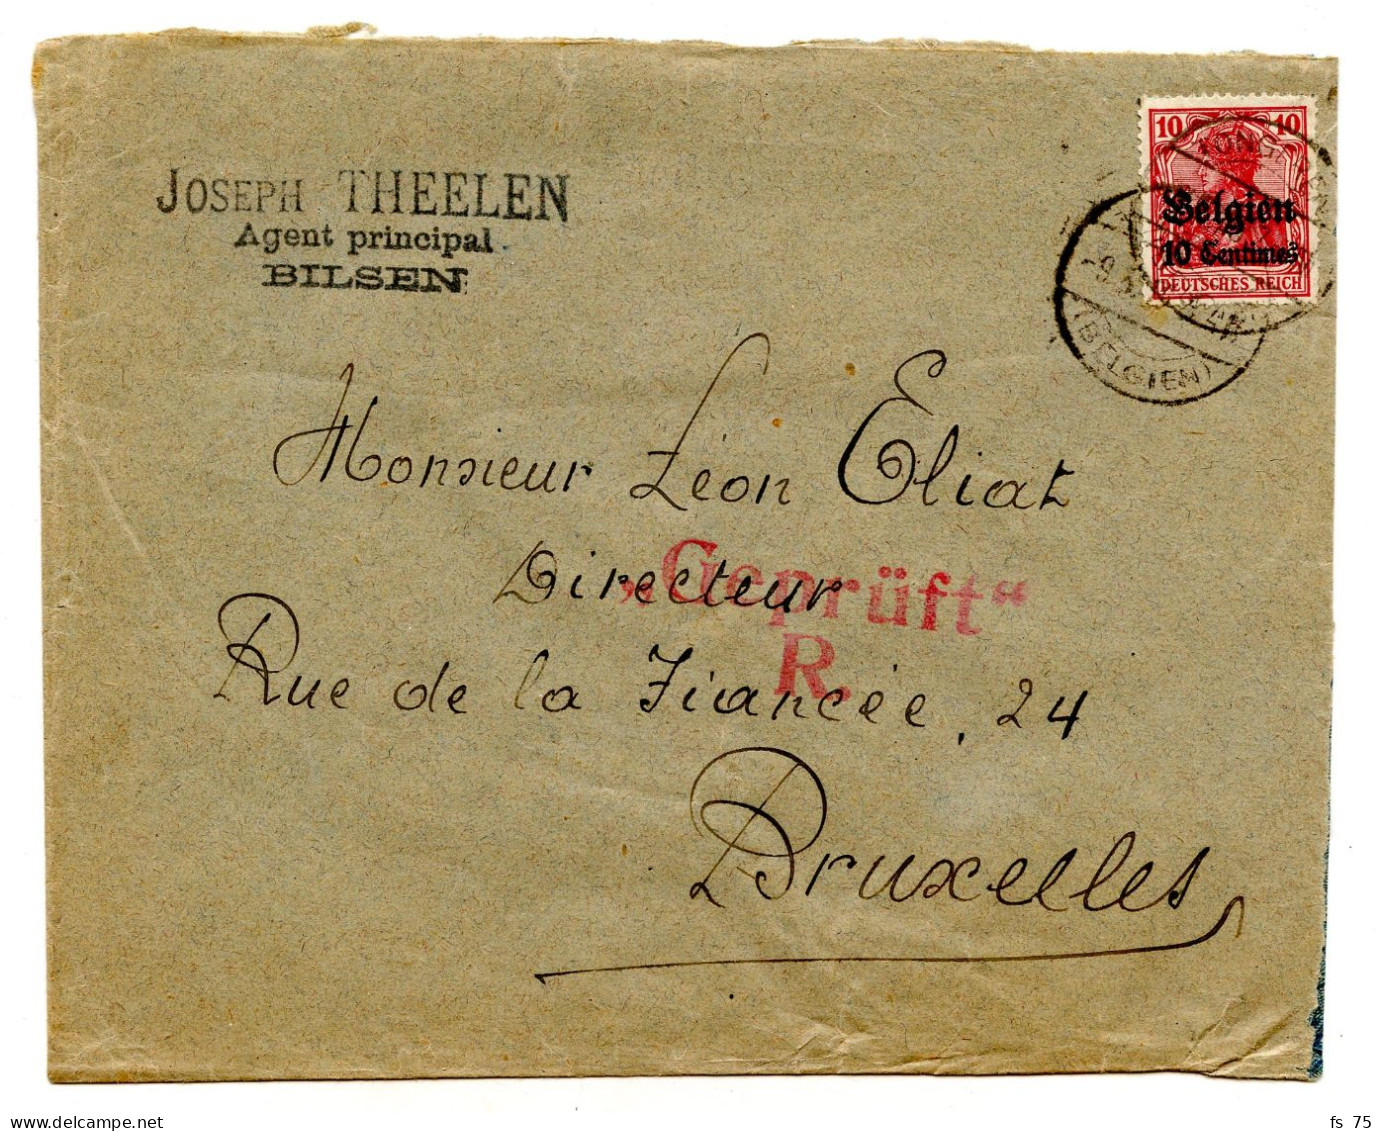 JOSEPH THEELEN
Agent principal
BILSEN
10 10
Belgien
10 Centimes
DEUTSCHES REICH
(BELGIEN)
Monsieur Léon Eliat
Directeur
„Geprüft“
R.
Rue de la Fiancée, 24
Bruxelles
delcampe.net
fs_75